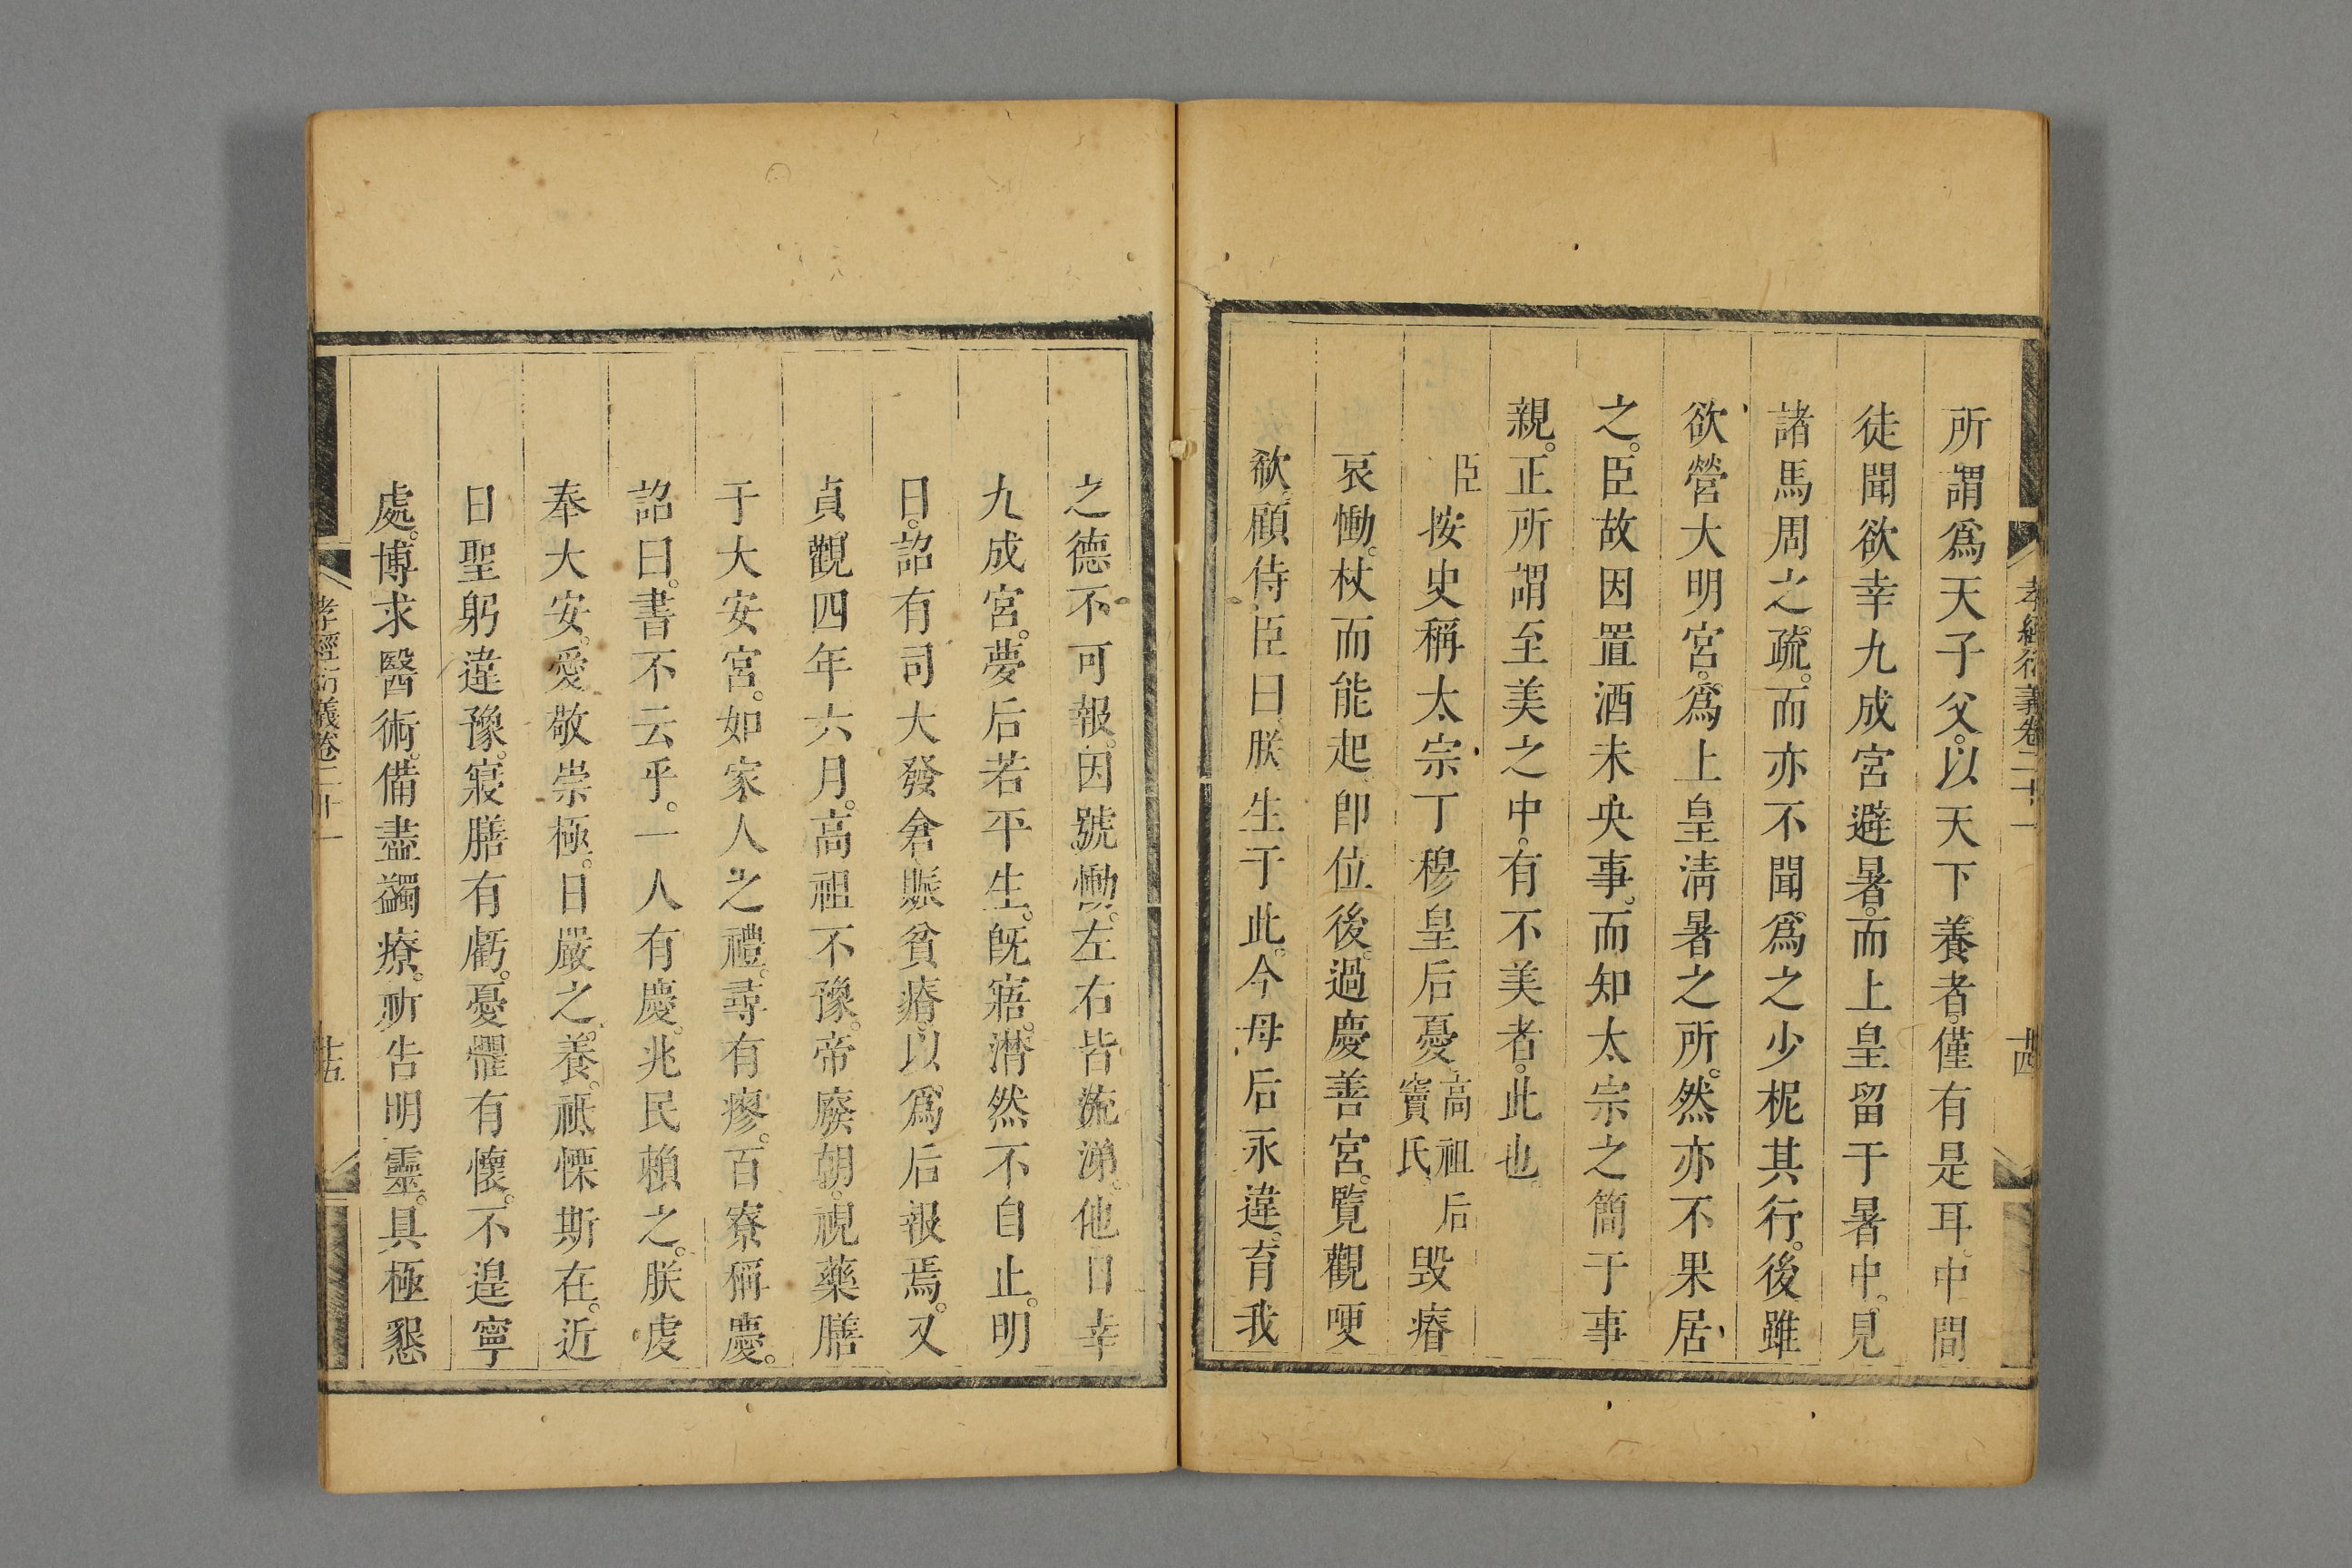 孝經衍義卷二十一
十四
所謂爲天子父。以天下養者。僅有是耳。中間
徒聞欲幸九成宮避暑。而上皇留于暑中。見
諸馬周之疏。而亦不聞爲之少柅其行。後雖
欲營大明宮。爲上皇淸暑之所。然亦不果居
之。臣故因置酒未央事。而知太宗之簡于事
親。正所謂至美之中。有不美者。此也。
臣按史稱太宗丁穆皇后憂高祖后竇氏毁瘠
哀慟。杖而能起卽位後。過慶善宮。覽觀哽
欷。顧侍臣曰朕生于此。今母后永違。育我
之德不可報。因號慟。左右皆流涕。他日幸
九成宮。夢后若平生。旣寤。潸然不自止。明
日。詔有司大發倉賑貧瘠。以爲后報焉。又
貞觀四年六月。高祖不豫。帝廢朝。視藥膳
于大安宮。如家人之禮。尋有瘳。百寮稱慶。
詔曰。書不云乎。一人有慶。兆民賴之。朕虔
奉大安。愛敬崇極。日嚴之養。祗慄斯在。近
日聖躬違豫。寢膳有虧。憂懼有懷。不遑寧
處。博求醫術。備盡蠲療。祈告明靈。具極懇
孝經衍義卷二十一
十五